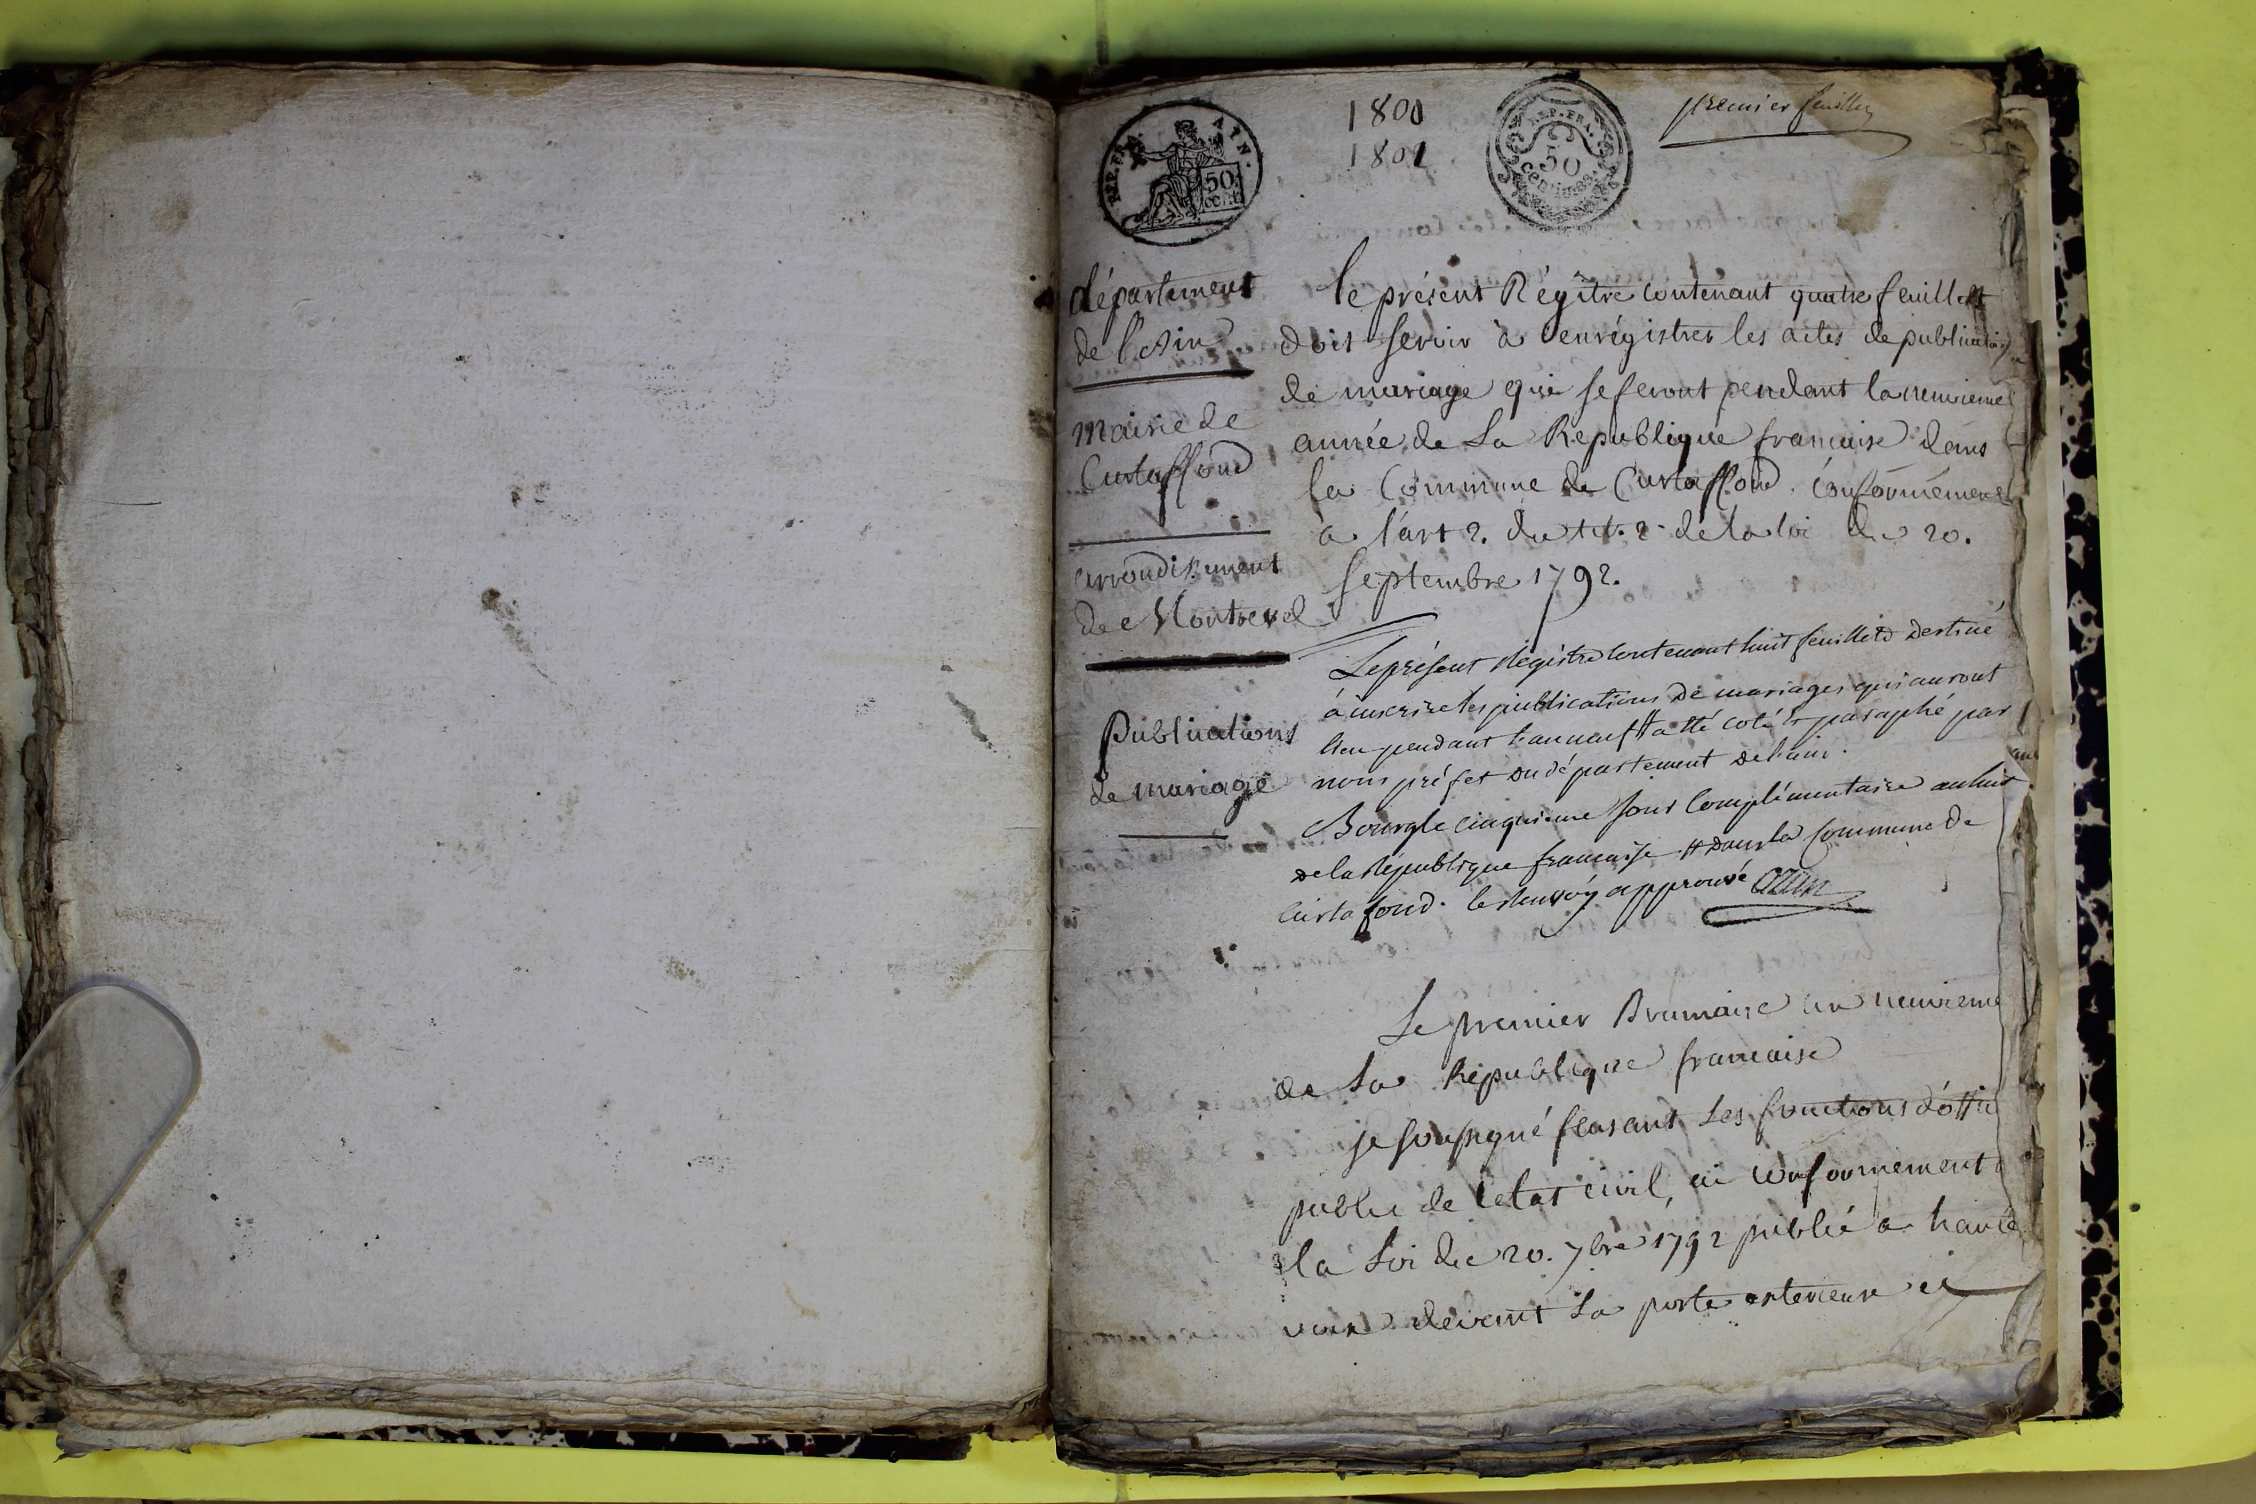 1800
1801
premier feuillet
REP. FRA. ATN.
50
cent.
REP. FRA.
50
centimes.
département
de l'Ain
Mairie de
Curtaffond
arrondissement
de Montrevel
Publications
de mariage
le présent Régître contenant quatre feuillets
doit servir à enrégistrer les actes de publication
de mariage qui se feront pendant la neuvieme
année de La Republique francaise dans
la Commune de Curtaffond. conformément
a l'art 2. du tit. 2 de la loi du 20.
Septembre 1792.
Le présent Registre contenant huit feuillets destiné
à inscrire les publications de mariages qui auront
lieu pendant l'an neuf # a été coté et paraphé par
nous préfet du département de l'ain.
Bourg le cinquieme jour Complémentaire an huit
de la République française # dans la commune de
curtafond. le renvoy approuvé
Le premier Brumaire an neuvieme
de La République francaise
je soussigné feasant Les fonctions d'offic
public de l'etat civil, ai conformement
la Loi du 20. 7bre 1792 publié a haute
voix devant La porte exterieure et